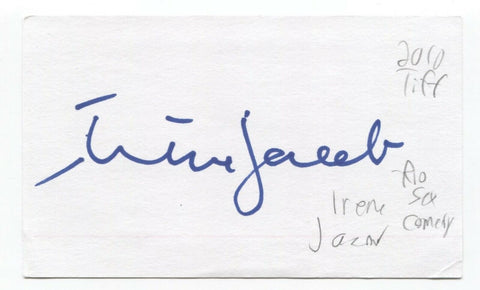 2010
Tiff
Irène Jacob
Rio
Sex
Comedy
Irene
Jacob